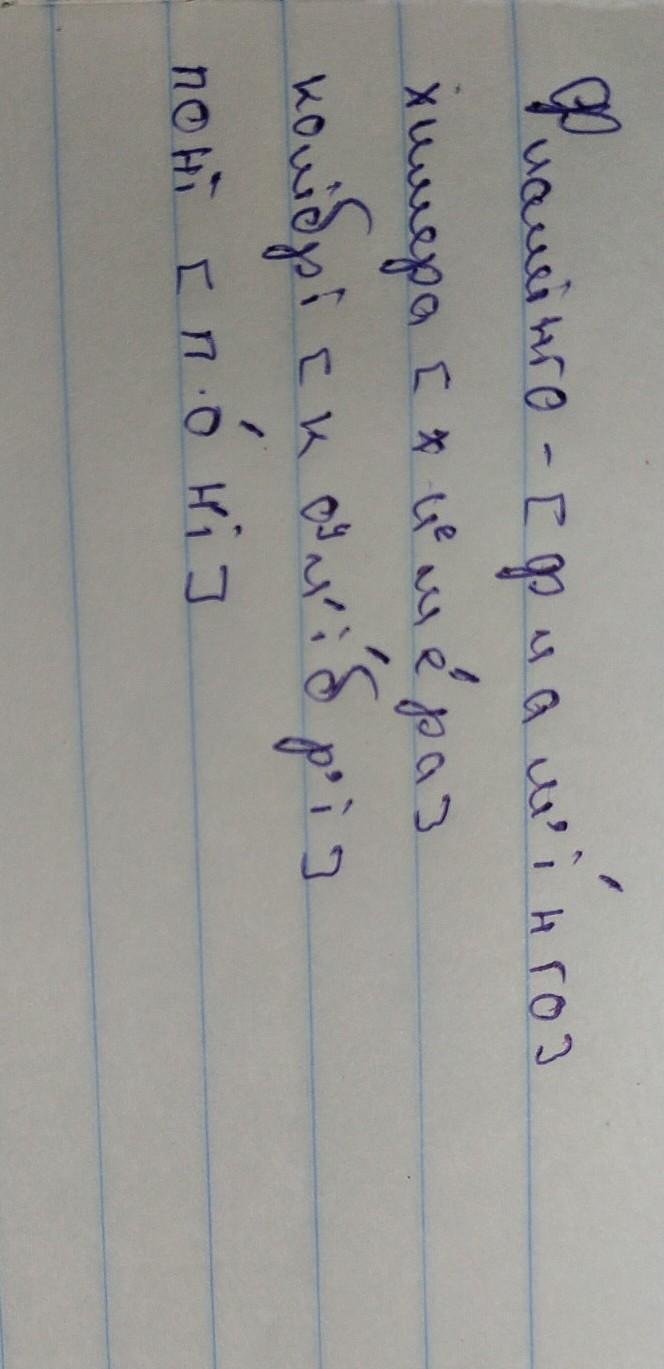 Фламінго - [ф л а м' і́ н г о]
химера [х и^е м е́ р а]
колібрі [к о^у л' і́ б р' і]
поні [п о́ н і]